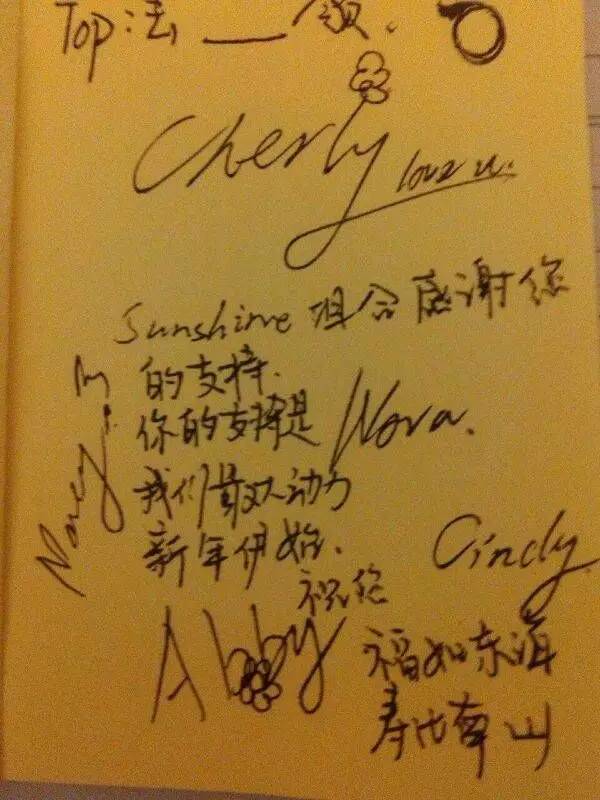 Top 法 __ 颁.
Cherly love u.
Sunshine 组合感谢您
的支持.
你的支持是
Nova.
我们最大动力
新年伊始.
Cindy
祝您
Abby
福如东海
寿比南山